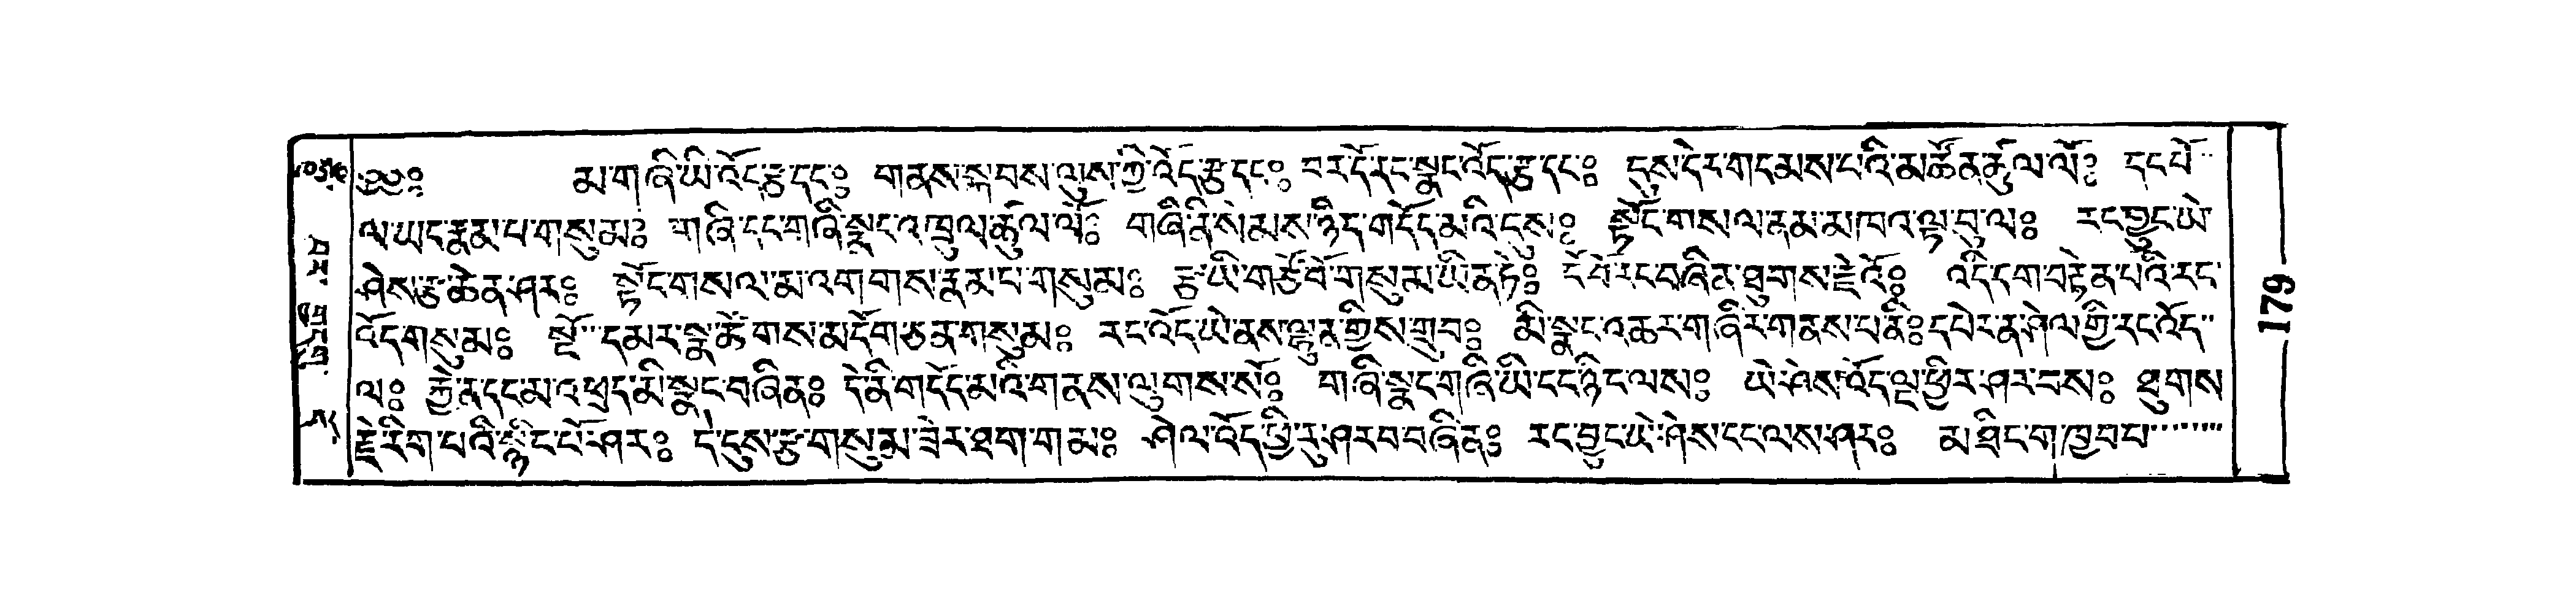 ༄༅༔ མ་གཞི་ཡི་འོད་རྩ་དང་༔ གནས་སྐབས་ལུས་ཀྱི་འོད་རྩ་དང་༔ བར་དོ་རང་སྣང་འོད་རྩ་དང་༔ དུས་དེར་གདམས་ངའི་མཚོན་ཚུལ་ལོ༔ དང་པོ་
ལ་ཡང་རྣམ་པ་གསུམ༔ གཞི་དང་གཞི་སྣང་འཁྲུལ་ཚུལ་ལོ༔ གཞི་ནི་སེམས་ཉིད་གདོད་མའི་དུས༔ སྟོང་གསལ་ནམ་མཁའ་ལྟ་བུ་ལ༔ རང་བྱུང་ཡེ་
ཤེས་རྩ་ཆེན་ཤར༔ སྟོང་གསལ་མ་འགགས་རྣམ་པ་གསུམ༔ རྩ་ཡི་གཙོ་བོ་གསུམ་ཡིན་ཏེ༔ ངོ་བོ་རང་བཞིན་ཐུགས་རྗེའོ༔ འདི་དག་བརྟེན་པའི་རང་
འོད་གསུམ༔ སྔོ་དམར་སྣ་ཚོགས་མདོག་ཅན་གསུམ༔ རང་འོད་ཡེ་ནས་ལྷུན་གྱིས་གྲུབ༔ མི་སྣང་འཆར་གཞིར་གནས་པ་ནི༔ དཔེར་ན་ཤེལ་གྱི་རང་འོད་
ལ༔ རྐྱེན་དང་མ་འཕྲད་མི་སྣང་བཞིན༔ དེ་ནི་གདོད་མའི་གནས་ལུགས་སོ༔ གཞི་སྣང་གཞི་ཡི་དང་ཉིད་ལས༔ ཡེ་ཤེས་འོད་ལྔ་ཕྱིར་ཤར་བས༔ ཐུགས
རྗེ་རིག་པའི་སྙིང་པོ་ཤར༔ དེ་དུས་རྩ་གསུམ་ཟེར་ཐག་གམ༔ ཤེལ་འོད་ཕྱི་རུ་ཤར་བ་བཞིན༔ རང་བྱུང་ཡེ་ཤེས་དང་ལས་ཤར༔ མཐིང་ག་ཁྱབ་པ
179